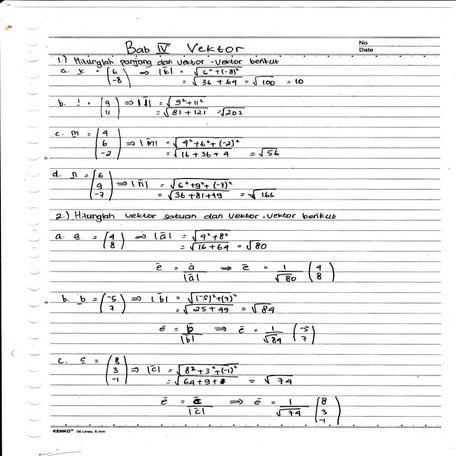 Bab IV Vektor
No
Date
1.) Hitunglah panjang dari vektor-vektor berikut
a. k = (6 -8) ⇒ |k̄| = √6²+(-8)²
= √36 + 64 = √100 = 10
b. l = (9 11) ⇒ |l̄| = √9²+11²
= √81 + 121 = √202
c. m = (4 6 -2) ⇒ |m̄| = √4²+6²+(-2)²
= √16 + 36 + 4 = √56
d. n = (6 9 -7) ⇒ |n̄| = √6²+9²+(-7)²
= √36+81+49 = √166
2.) Hitunglah vektor satuan dari vektor-vektor berikut
a. a = (4 8) ⇒ |ā| = √4²+8²
= √16+64 = √80
ē = ā/|ā| ⇒ ē = 1/√80 (4 8)
b. b = (-5 7) ⇒ |b̄| = √(-5)²+(7)²
= √25 + 49 = √84
ē = b/|b| ⇒ ē = 1/√84 (-5 7)
c. c = (8 3 -1) ⇒ |c̄| = √8²+3²+(-1)²
= √64+9+ = √74
ē = /|c̄| ⇒ ē = 1/√74 (8 3 -1)
KENKO 36 Lines, 6 mm